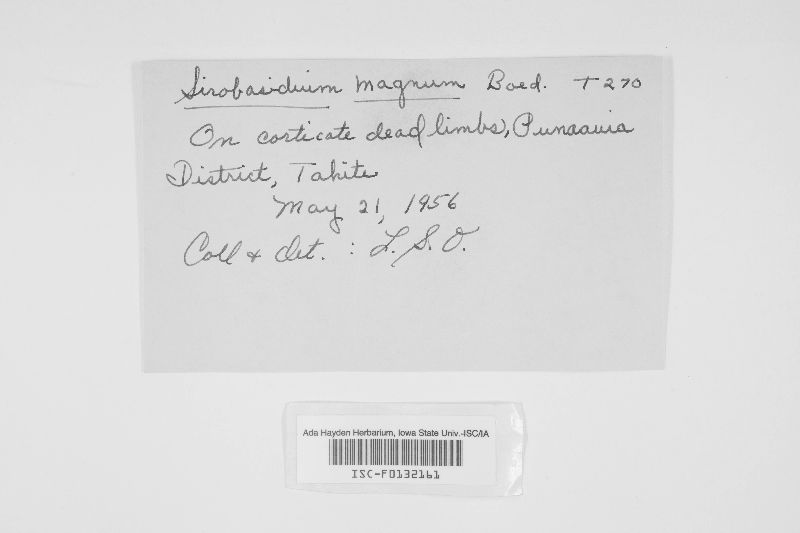 Sirobasidium magnum Boed. T 270
On corticate dead limbs, Punaauia
District, Tahiti
May 21, 1956
Coll & det. : L. S. O.
Ada Hayden Herbarium, Iowa State Univ.-ISC/IA
ISC-F0132161